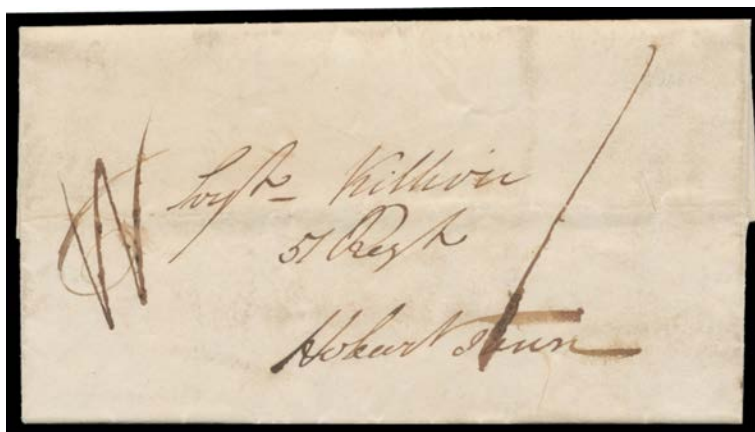 Serjt Killion
51 Regt
Hobart Town